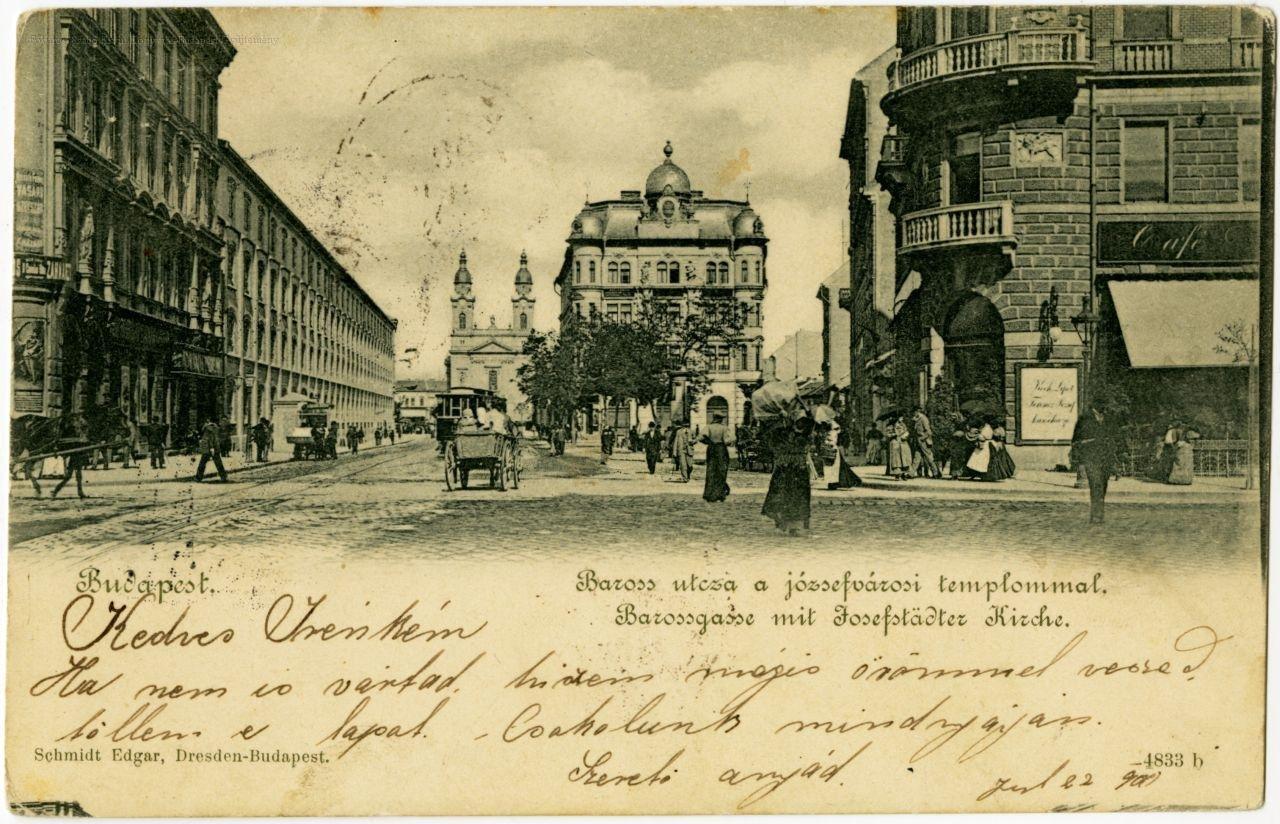 Café
Koch Lipót
Ferencz József
kávéháza
Budapest.
Baross utcza a józsefvárosi templommal.
Barossgasse mit Josefstädter Kirche.
Kedves Irénkém
Ha nem is vártad, hiszem mégis örömmel veszed,
töllem e lapot. Csokolunk mindnyájan.
Szerető anyád.
Schmidt Edgar, Dresden-Budapest.
4833 b
Jul 22 900